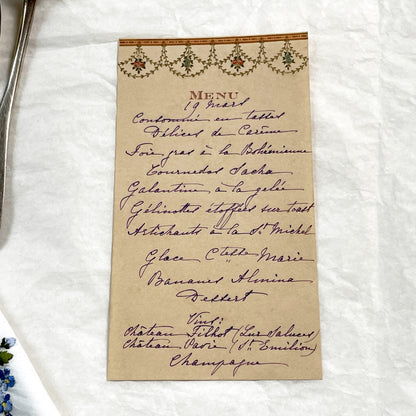 MENU
19 Mars
Consommé en tasses
Délices de Carême
Foie gras à la Bohémienne
Tournedos Sacha
Galantine à la gelée
Gélinottes étoffées sur toast
Artichauts à la St Michel
Glace Ctesse Marie
Bananes Almina
Dessert
Vins:
Château Filhot (Lur Saluces)
Château Pavie (St. Emilion)
Champagne